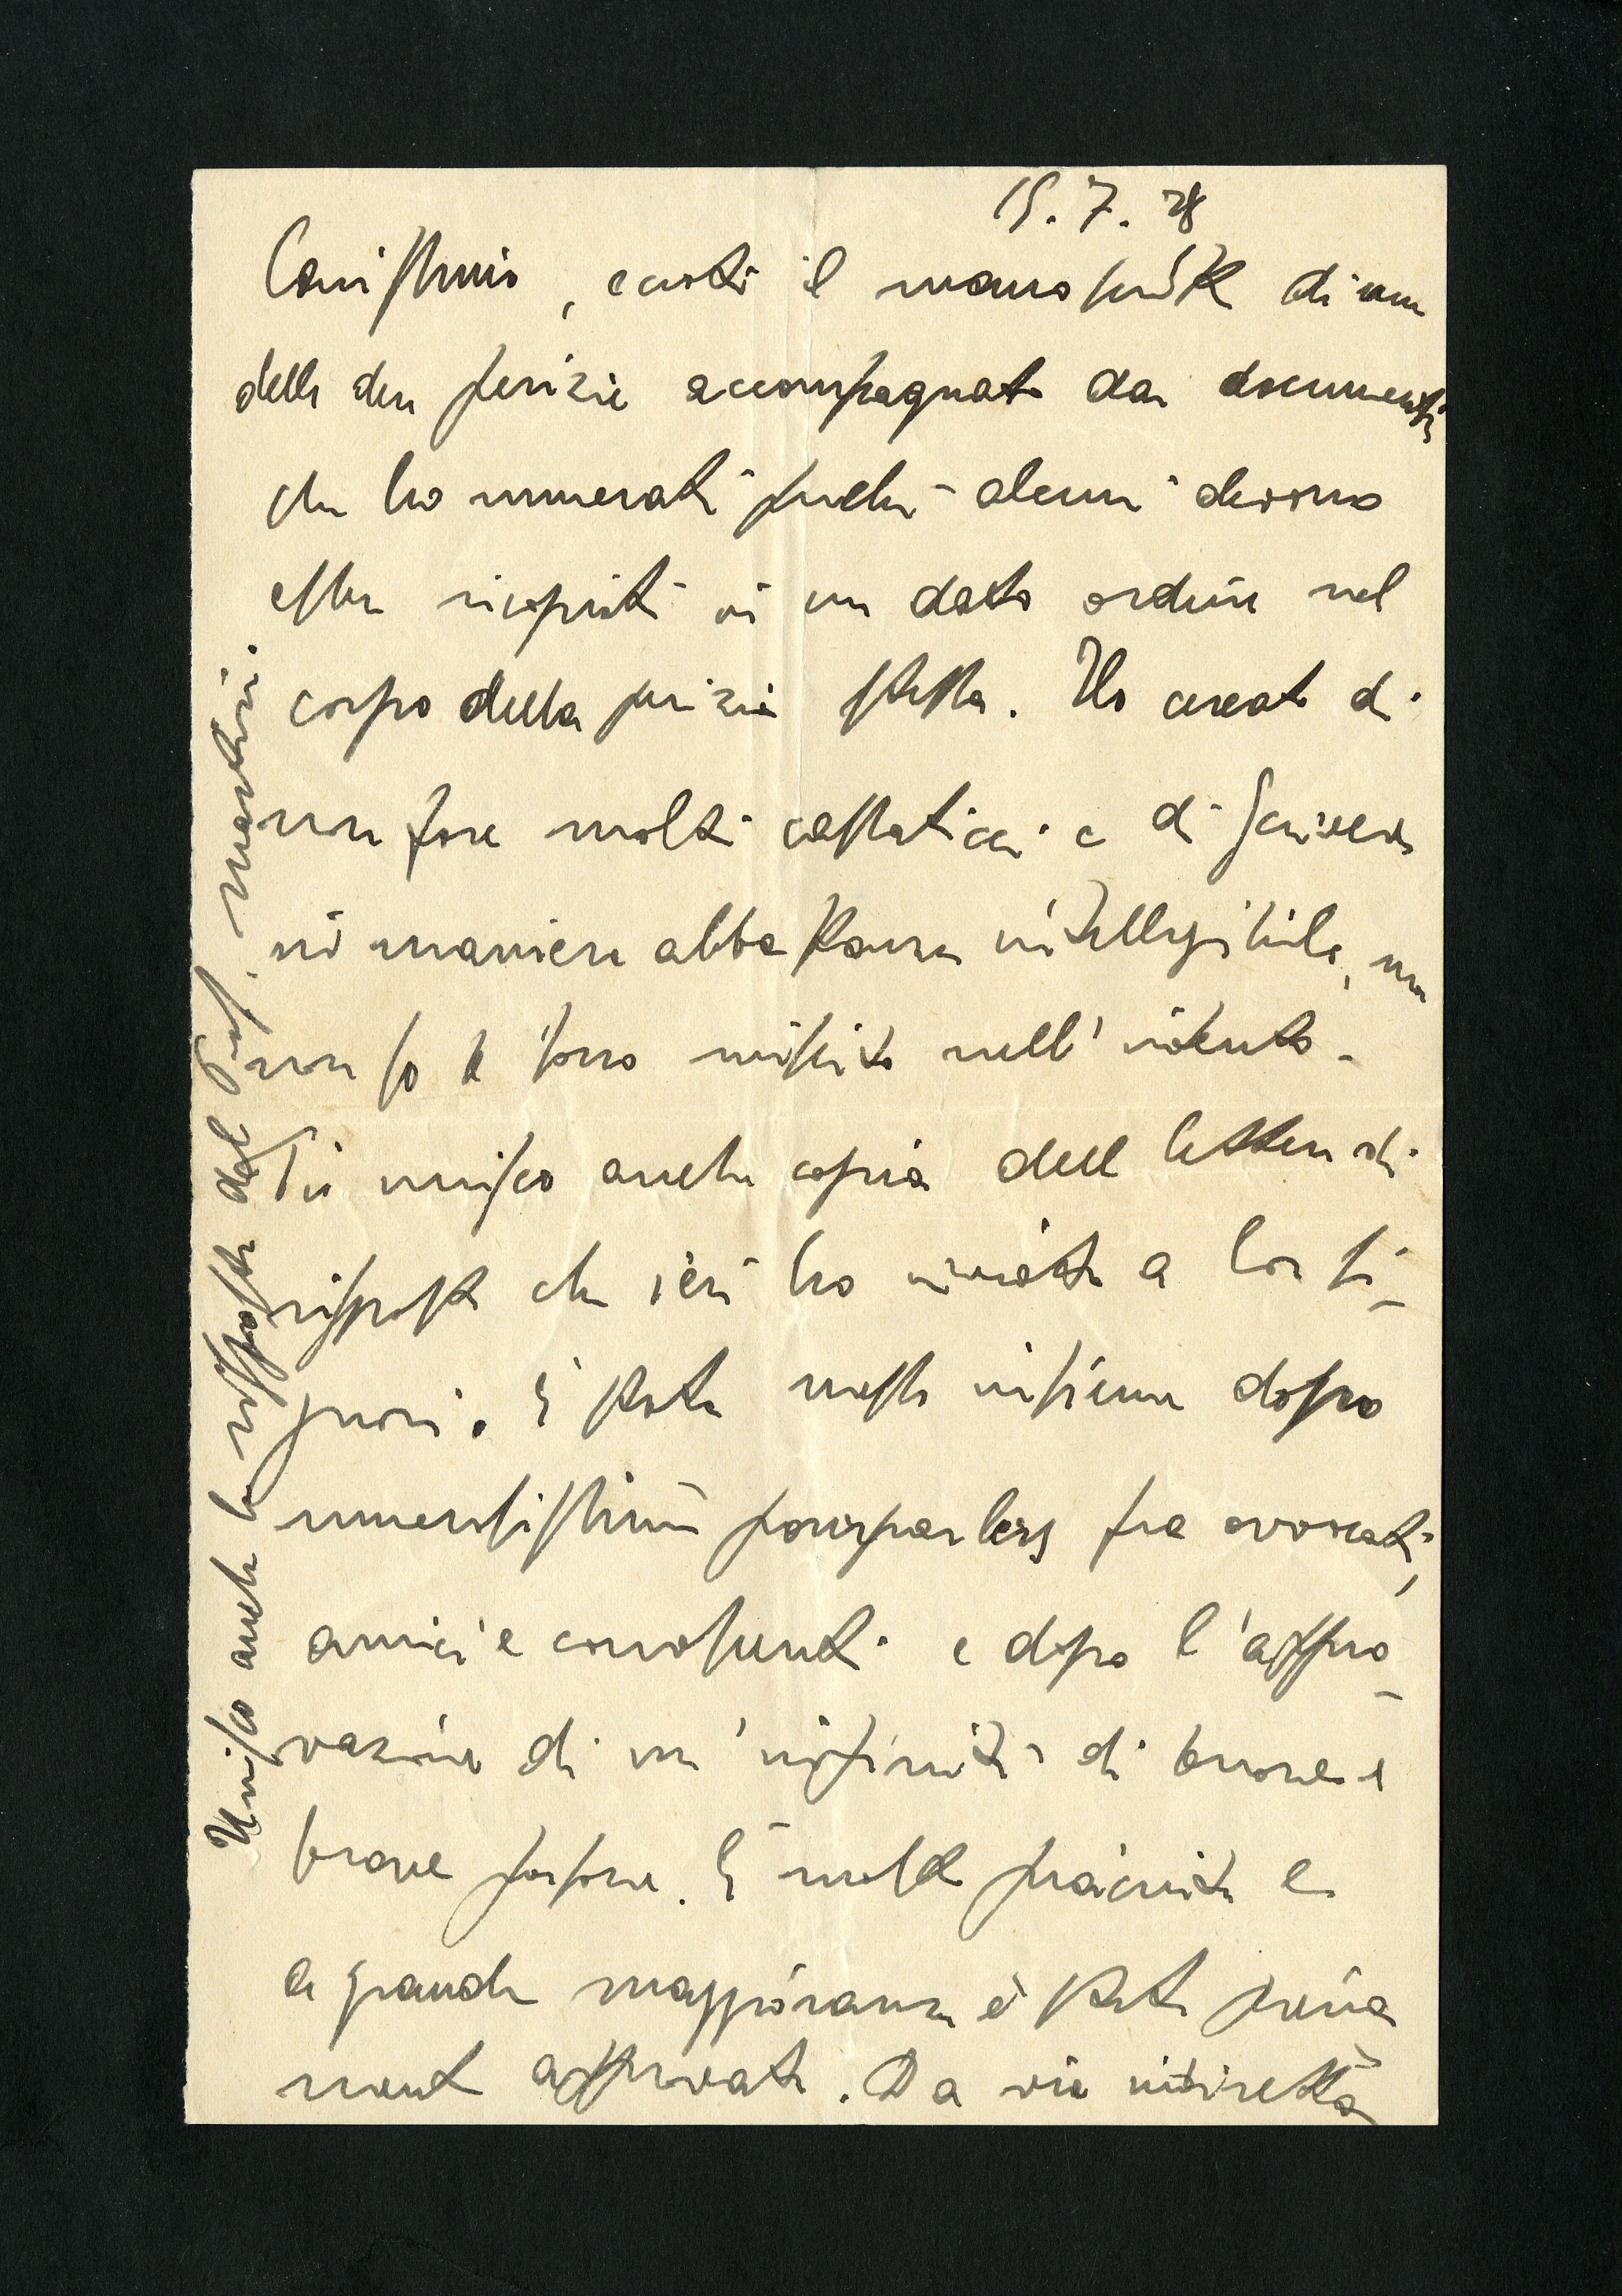 15.7.28
Carissimo, eccoti il manoscritto di una
delle due perizie accompagnato dai documenti
che ho numerati perché alcuni devono
esser ricopiati in un dato ordine nel
corpo della perizia stessa. Ho cercato di
non fare molti e di scrivere
in maniera abbastanza intelligibile, ma
non so se sono riuscito nell'intento.
Ti unisco anche copia della lettera di
risposta che ieri ho inviato a lor si-
gnori. È stata messa insieme dopo
numerosissimi pourparlers fra avvocati,
amici e conoscenti e dopo l'appro-
vazione di un'infinità di buone e
brave persone. È molto piaciuta e
a grande maggioranza è stata piena
mente approvata. Da via indiretta
Unisco anche la risposta del Prof. Martini.